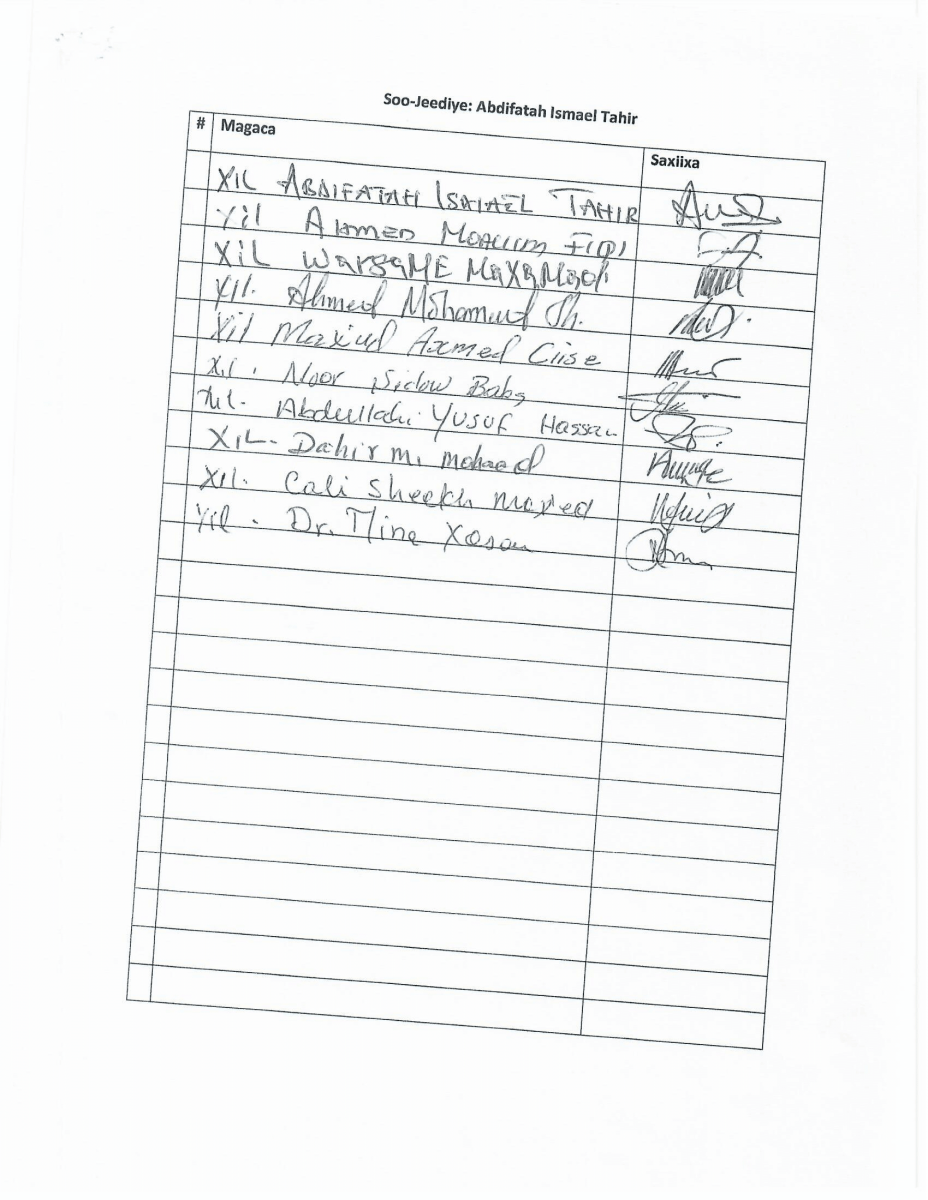 Soo-Jeediye: Abdifatah Ismael Tahir
# Magaca Saxiixa
XIL ABDIFATAH ISMAEL TAHIR
XIL AHMED MOALLIM FIQI
XIL WARSAME MaXaMad
XIL. Ahmed Mohamud Jh.
XIL Maxiud Axmed Ciise
XIL. Noor Sidow
XIL. Abdullahi YUSUF Hassan
XIL- Dahir M. Mohaed
XIL. Cali Sheekh maxed
XIL. Dr. Mina Xasan